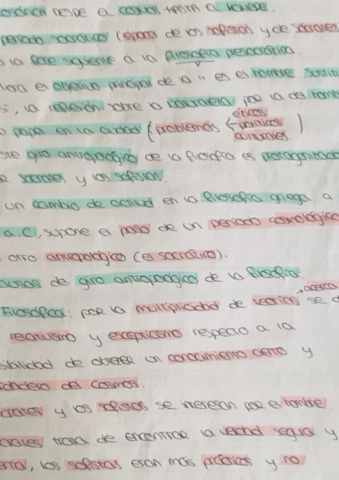 respe el cosmos, hasta a
periodo socrático (época de los sofistas y de socrates
o la fase siguiente a la filosofía presocrática.
ahora es objetivo principal de la " es el hombre, sustitu
s, la reflexión sobre la por la del homb
o papel en la ciudad (problemas éticos políticos culturales)
este giro antropológico de la filosofía es protagonizado
socrates y los sofistas.
un cambio de actitud en la filosofía griega a
a.C, supone el paso de un periodo cosmológico
otro antropológico (el socrático).
causas de giro antropológico de la filosofía.
Filosófica: por la multiplicidad de teorías acerca se
relativismo y escepticismo respecto a la
sibilidad de obtener un conocimiento cierto y
verdadero del cosmos.
ocrates y los sofistas se interesan por el hombre
ocrates trata de encontrar la verdad segura y
erta, los sofistas eran más prácticos y no